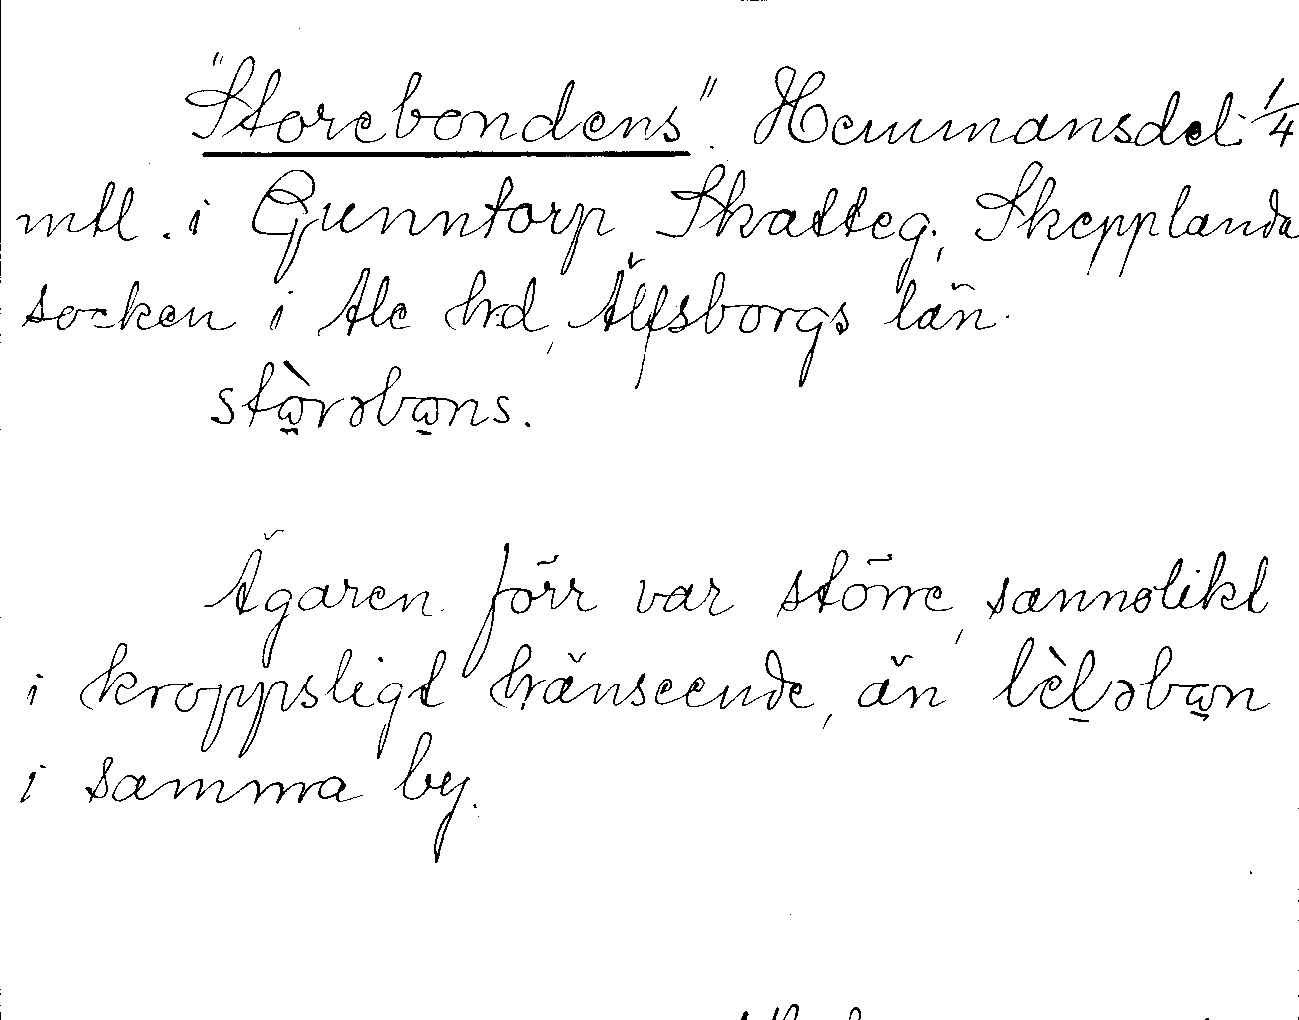 "Storebondens". Hemmansdel: 1/4
mtl. i Gunntorp Skatteg., Skepplanda
socken i Ale hrd, Älfsborgs län.
stὼrəbωns.
Ägaren förr var större, sannolikt
i kroppsligt hänseende, än lèləbωn
i samma by.